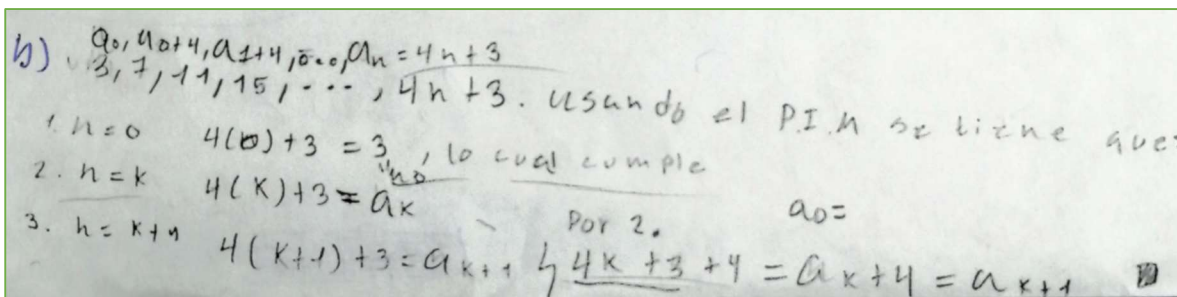 b) a₀, a₀+4, a₁+4, ..., aₙ = 4n+3
3, 7, 11, 15, ..., 4n+3. usando el P.I.M se tiene que:
1. n=0 4(0)+3 = 3, lo cual cumple
2. n=k 4(k)+3 = aₖ
Por 2. a₀=
3. n=k+1 4(k+1)+3 = aₖ₊₁ 4k+3+4 = aₖ+4 = aₖ₊₁